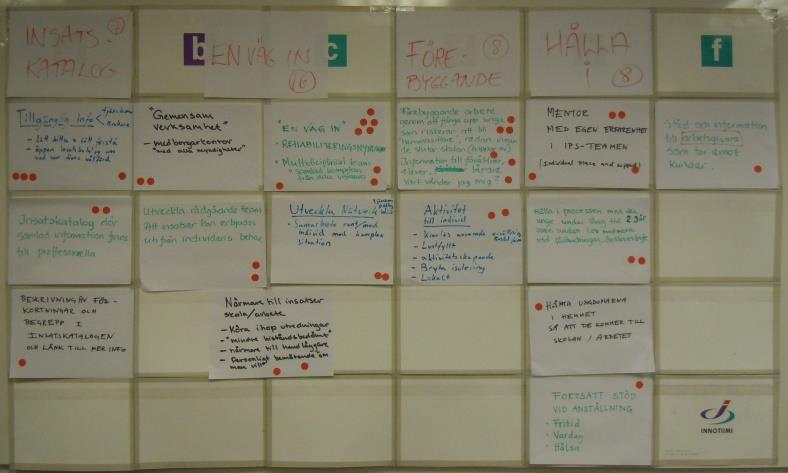 INSATS-
KATALOG
7
b
EN VÄG IN
16
c
FÖRE-
BYGGANDE
8
HÅLLA
I
8
f
Tillgänglig info
- Lätt hitta & lätt förstå
"Gemensam
verksamhet"
- medborgarkontor
"med alla myndigheter"
"EN VÄG IN"
- Multidiciplinärt team
Förebyggande arbete
genom att fånga upp unga
som riskerar att bli
hemmasittare, redan innan
de slutar skolan
Information till föräldrar,
elever, lärare
Vart vänder jag mig?
MENTOR
MED EGEN ERFARENHET
I IPS-TEAMEN
(Individual place and support)
Stöd och information
till arbetsgivare
som tar emot
kunder.
Insatskatalog där
samlad information finns
till professionella
Utveckla rådgivande team
Att insatser kan erbjudas
utifrån individens behov
Utveckla Nätverk
- Samarbete runt/med
individ med komplex
situation
Aktivitet
till individ
- Lustfyllt
- aktivitetsskapande
- Bryta isolering
- Lokalt
Hålla i processen med den
unge under lång tid 2-3 år
BESKRIVNING AV FÖR-
KORTNINGAR OCH
BEGREPP I
INSATSKATALOGEN
OCH LÄNK TILL MER INFO
Närmare till insatser
skola/arbete
- Köra ihop utredningar
- "mindre biståndsbedömt"
- närmare till handläggare
- Personligt bemötande om
man vill"
HÄMTA UNGDOMARNA
I HEMMET
SÅ ATT DE KOMMER TILL
SKOLAN / ARBETET
FORTSATT STÖD
VID ANSTÄLLNING
· Fritid
· Vardag
· Hälsa
INNOTIIMI